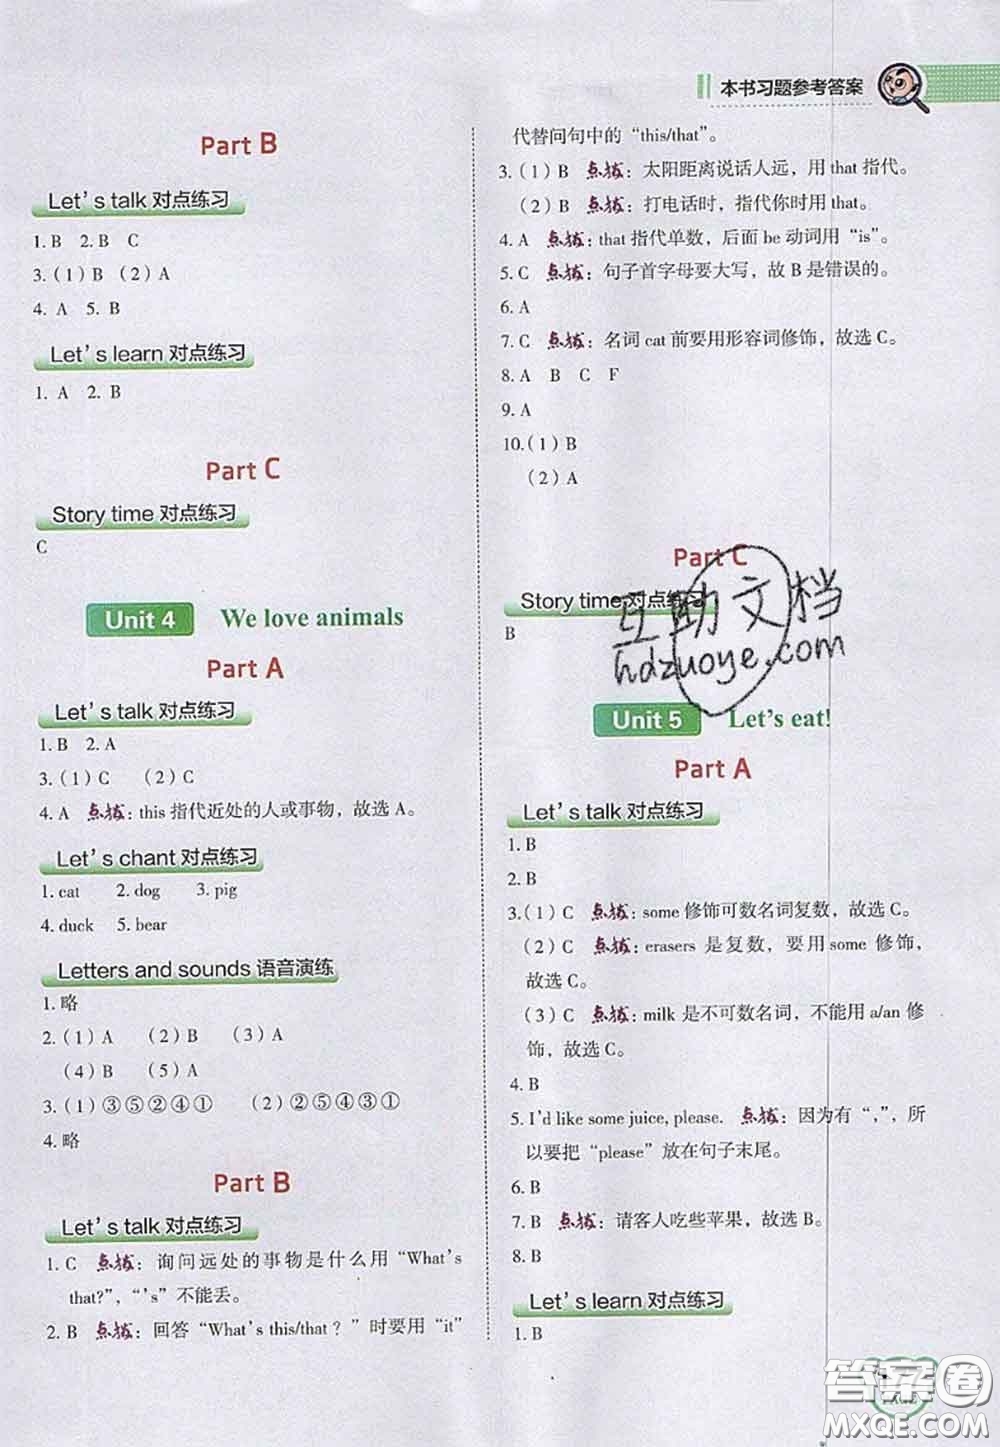 本书习题参考答案
Part B
Let's talk 对点练习
1. B 2. B C
3.（1）B （2）A
4. A 5. B
Let's learn 对点练习
1. A 2. B
Part C
Story time 对点练习
C
Unit 4 We love animals
Part A
Let's talk 对点练习
1. B 2. A
3.（1）C （2）C
4. A 点拨：this 指代近处的人或事物，故选 A。
Let's chant 对点练习
1. cat 2. dog 3. pig
4. duck 5. bear
Letters and sounds 语音演练
1. 略
2.（1）A （2）B （3）A
（4）B （5）A
3.（1）③⑤②④① （2）②⑤④③①
4. 略
Part B
Let's talk 对点练习
1. C 点拨：询问远处的事物是什么用“What's
that?”，“'s”不能丢。
2. B 点拨：回答“What's this/that？”时要用“it”
代替问句中的“this/that”。
3.（1）B 点拨：太阳距离说话人远，用 that 指代。
（2）B 点拨：打电话时，指代你时用 that。
4. A 点拨：that 指代单数，后面 be 动词用“is”。
5. C 点拨：句子首字母要大写，故 B 是错误的。
6. A
7. C 点拨：名词 cat 前要用形容词修饰，故选 C。
8. A B C F
9. A
10.（1）B
（2）A
Part C
Story time 对点练习
B
互助文档
hdzuoye.com
Unit 5 Let's eat!
Part A
Let's talk 对点练习
1. B
2. B
3.（1）C 点拨：some 修饰可数名词复数，故选 C。
（2）C 点拨：erasers 是复数，要用 some 修饰，
故选 C。
（3）C 点拨：milk 是不可数名词，不能用 a/an 修
饰，故选 C。
4. B
5. I'd like some juice, please. 点拨：因为有“,”，所
以要把“please”放在句子末尾。
6. B
7. B 点拨：请客人吃些苹果，故选 B。
8. B
Let's learn 对点练习
1. B
PAGE
答案圈
MXQE.COM